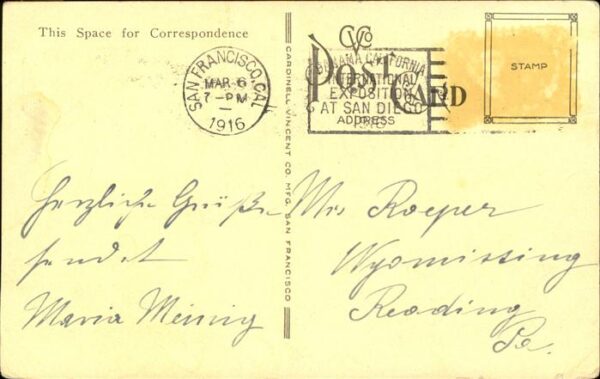 This Space for Correspondence
SAN FRANCISCO, CAL.
MAR 6
7-PM
1916
CVCo
POST CARD
PANAMA CALIFORNIA
INTERNATIONAL
EXPOSITION
AT SAN DIEGO
1916
ADDRESS
STAMP
CARDINELL VINCENT CO. MFG. SAN FRANCISCO
Herzliche Grüße
sendet
Maria Meinig
Mrs Roeper
Wyomissing
Reading
Pa.